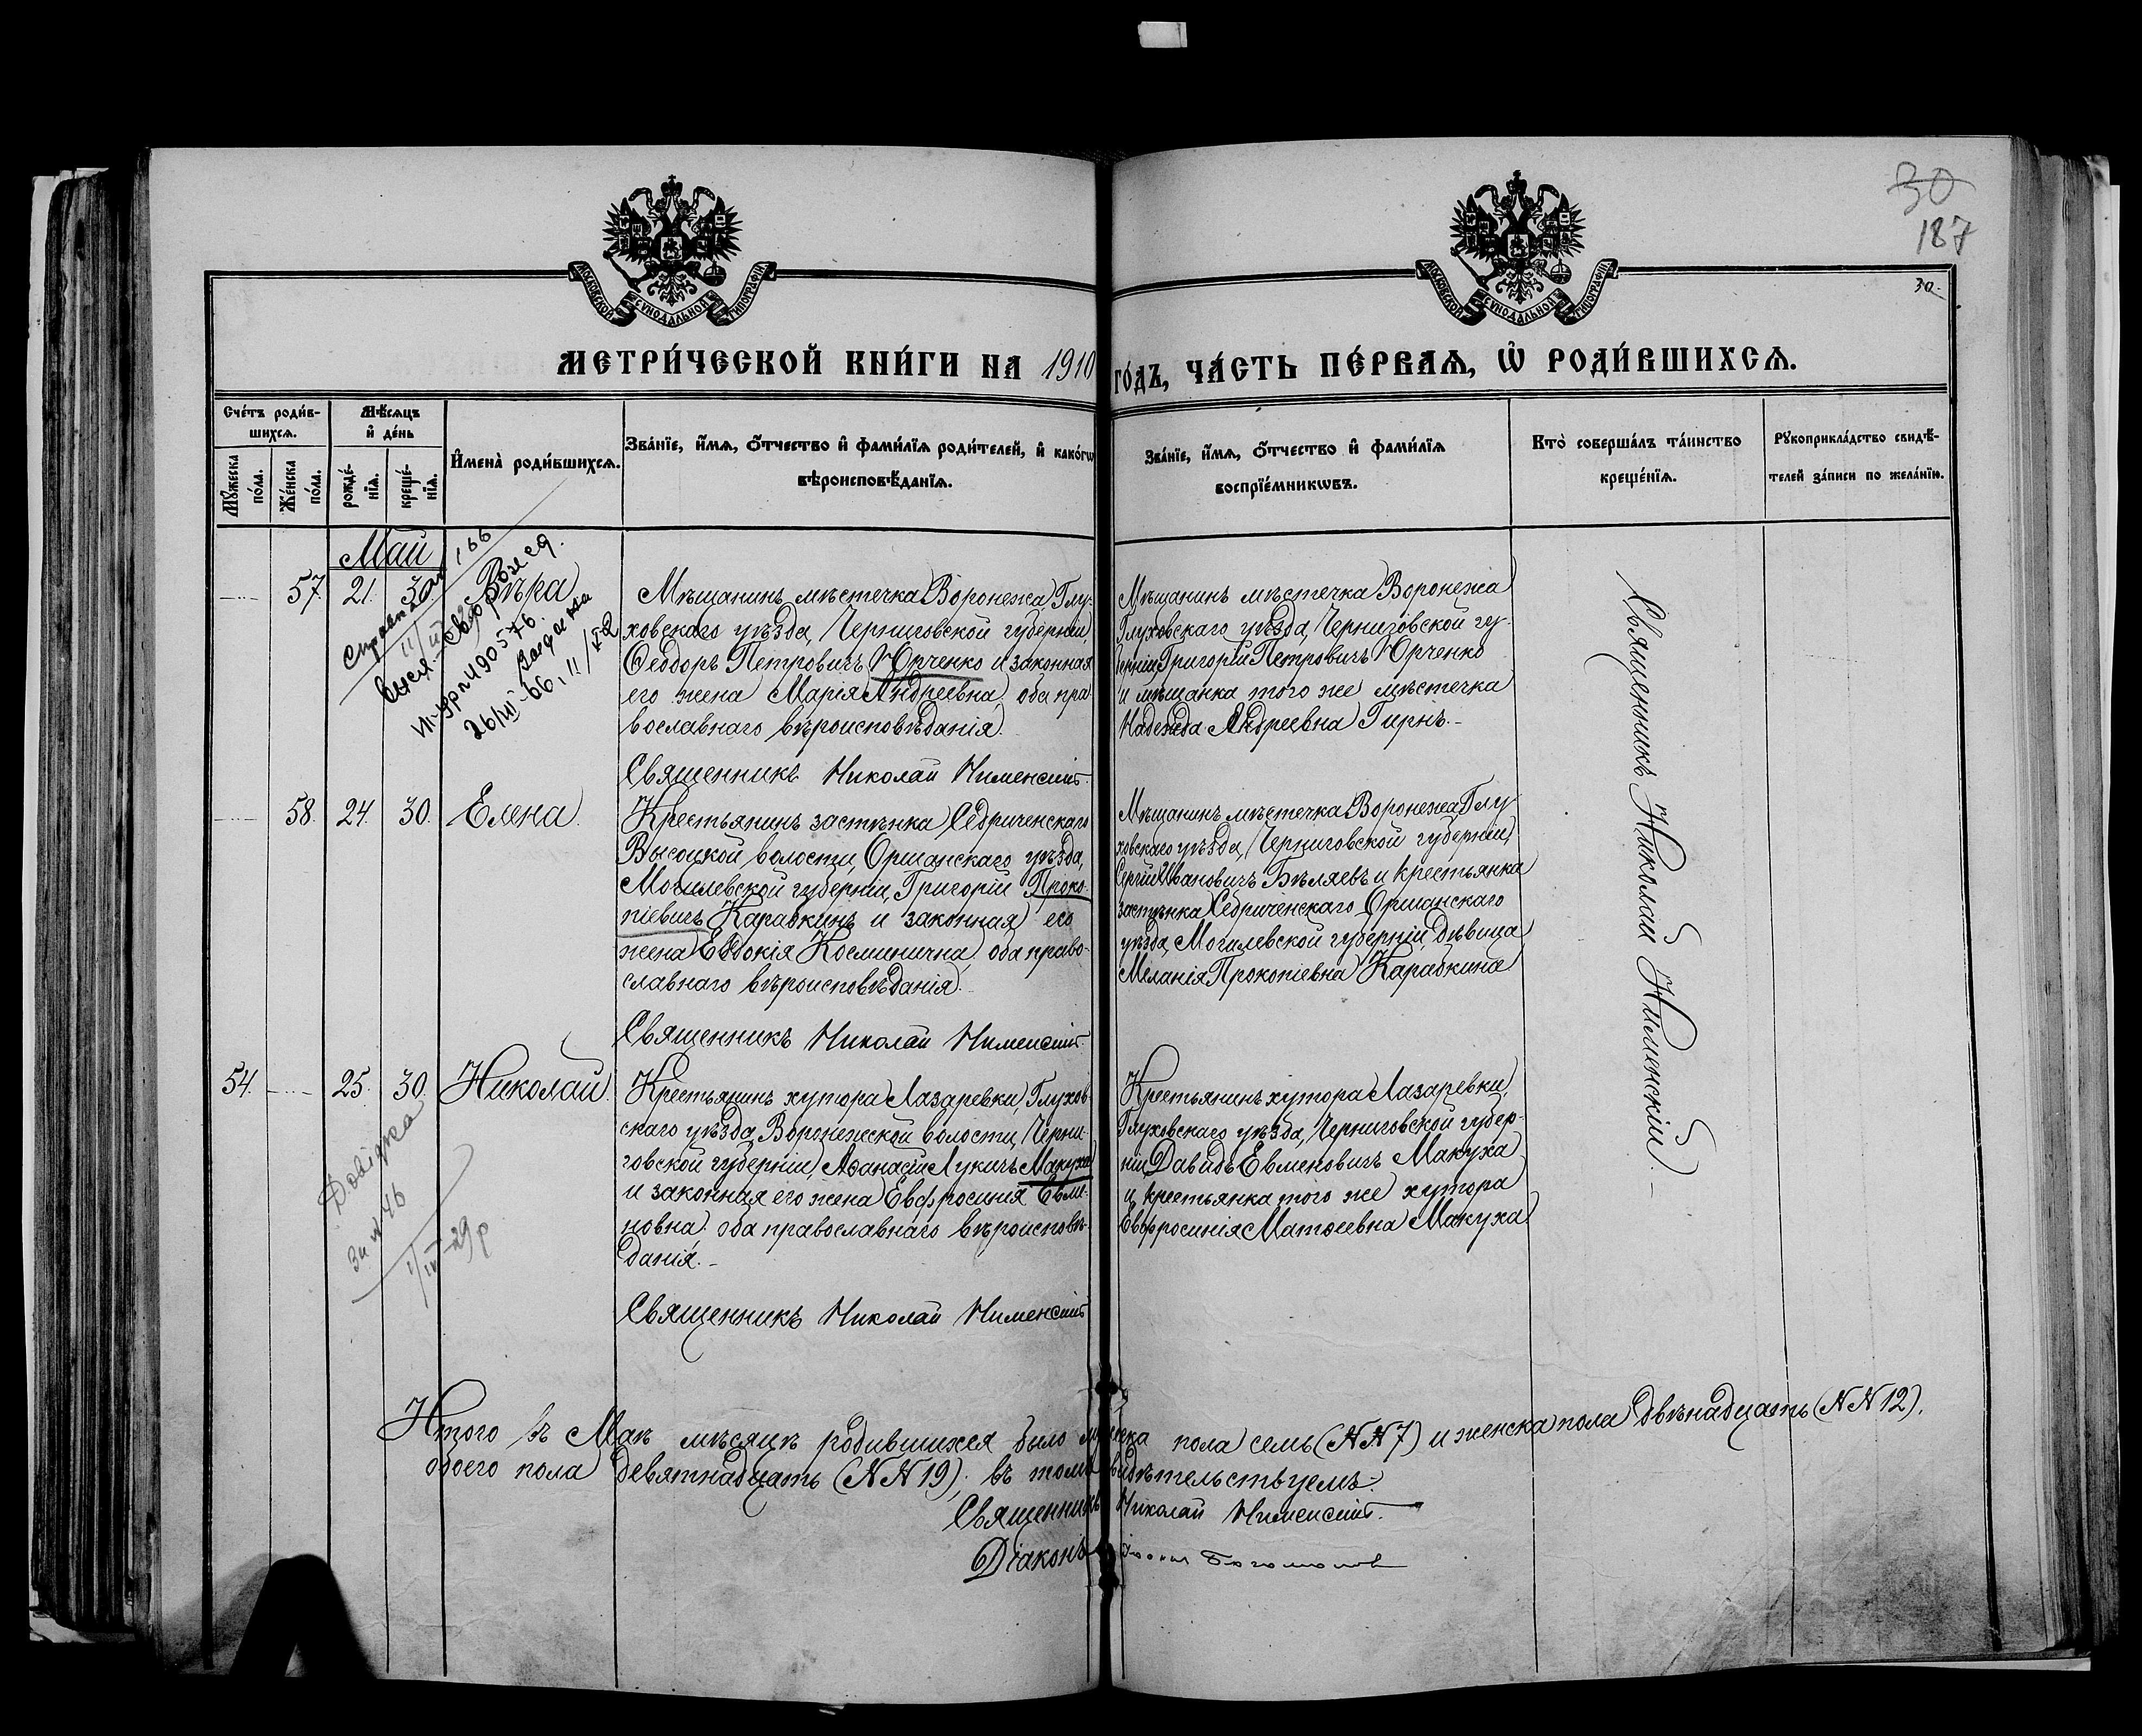 30
187
30.
МОСКОВСКОЙ СѴНОДАЛЬНОЙ ТИПОГРАФІИ
МОСКОВСКОЙ СѴНОДАЛЬНОЙ ТИПОГРАФІИ
МЕТРИ́ЧЕСКОЙ КНИ́ГИ НА 1910 ГО́ДЪ, ЧА́СТЬ ПЕ́РВАѦ, Ѽ РОДИ́ВШИХСѦ.
Сче́тъ роди́в-
шихсѧ.
Мꙋжеска по́ла.
Же́нска по́ла.
Мѣ́сѧцъ
и҆ де́нь
рожде́-
нїѧ.
креще́-
нїѧ.
И҆мена̀ роди́вшихсѧ.
Зва́нїе, и҆́мѧ, ѻ҆́тчество и҆ фами́лїѧ роди́телей, и҆ како́гѡ
вѣроисповѣ́данїѧ.
Зва́нїе, и҆́мѧ, ѻ҆́тчество и҆ фами́лїѧ
воспрїе́мникѡвъ.
Кто̀ соверша́лъ та́инство
креще́нїѧ.
Рꙋкоприкла́дство свидѣ́-
телей за́писи по жела́нїю.
Май
57. 21. 30. Вѣра
Мѣщанинъ мѣстечка Воронежа Глу-
ховскаго уѣзда, Черниговской губерніи,
Ѳеодоръ Петровичъ Юрченко и законная
его жена Марія Андреевна, оба пра-
вославнаго вѣроисповѣданія.
Священникъ Николай Нименскій.
Мѣщанинъ мѣстечка Воронежа
Глуховскаго уѣзда, Черниговской гу-
берніи Григорій Петровичъ Юрченко
и мѣщанка того же мѣстечка
Надежда Андреевна Гирнъ.-
Справка
№ 490576.
26/III-66.
58. 24. 30. Елена.
Крестьянинъ застѣнка Седриченскаго
Высоцкой волости, Оршанскаго уѣзда,
Могилевской губерніи, Григорій Проко-
піевичъ Каравкинъ и законная его
жена Евдокія Космининна, оба право-
славнаго вѣроисповѣданія.-
Священникъ Николай Нименскій.
Мѣщанинъ мѣстечка Воронежа, Глу-
ховскаго уѣзда, Черниговской губерніи,
Сергій Ивановичъ Бѣляевъ и крестьянка
застѣнка Седриченскаго Оршанскаго
уѣзда, Могилевской губерніи, дѣвица
Меланія Прокопіевна Каравкина
54. 25. 30. Николай.
Крестьянинъ хутора Лазаревки, Глухов-
скаго уѣзда, Воронежской волости, Черни-
говской губерніи, Аѳанасій Лукичъ Макуха
и законная его жена Евфросинія Евме-
новна. оба православнаго вѣроисповѣ-
данія.-
Священникъ Николай Нименскій
Крестьянинъ хутора Лазаревки,
Глуховскаго уѣзда, Черниговской губер-
ніи Давидъ Евменовичъ Макуха
и крестьянка того же хутора
Евфросинія Матѳеевна Макуха
Довідка
за № 46
1/IV-29 р
Священникъ Николай Нименскій.-
Итого въ Маѣ мѣсяцѣ родившихся было мужеска пола семь (NN 7) и женска пола двѣнадцать (NN 12).
обоего пола девятнадцать (NN 19); въ томъ свидѣтельствуемъ:
Священникъ Николай Нименскій.
Діаконъ Богомолов